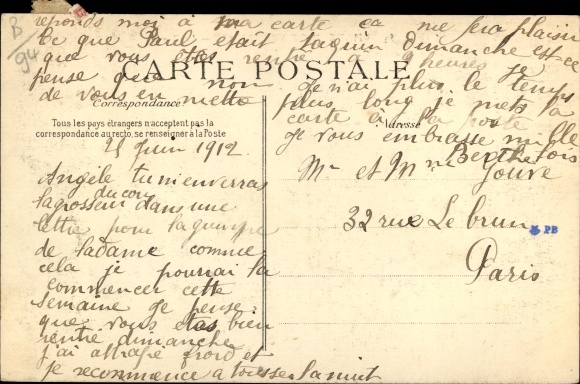 B/94
réponds moi à ma carte ça me fera plaisir
Ce que Paul était taquin Dimanche est-ce
que vous êtes rentré à 9 heures je
pense que non je n'ai plus le temps
de vous en mettre plus long je mets la
carte à la poste
je vous embrasse mille fois
Berthe
CARTE POSTALE
Correspondance
Adresse
Tous les pays étrangers n'acceptent pas la
correspondance au recto, se renseigner à la Poste
25 juin 1912
Angèle tu m'enverras
la grosseur du cou dans une
lettre pour la guimpe
de la dame comme
cela je pourrai la
commencer cette
semaine je pense
que vous etes bien
rentré dimanche
j'ai attrapé froid et
je recommence a tousser la nuit
Mr et Mme Jouve
32 rue Le brun
Paris
PB